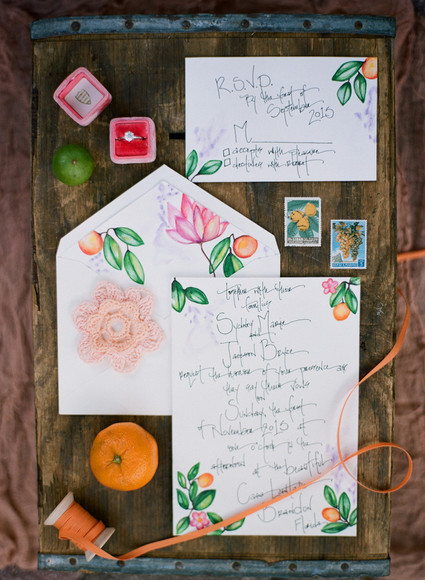 R.S.V.P.
By the first of
September
2015
M
accepts with pleasure
declines with regret
together with their
families
Sydney Marie
and
Jameson Bryce
request the honour of your presence as
they say their vows
on
Sunday, the first
of November 2015 at
one o'clock in the
afternoon at the beautiful
Brandon
Florida